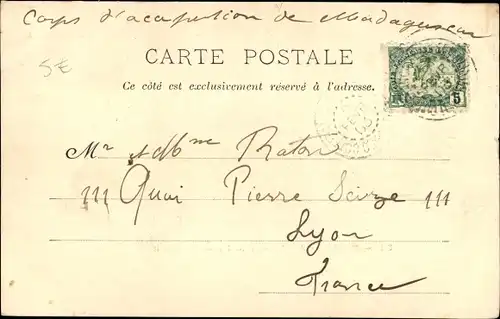 Corps d'occupation de Madagascar
5E
CARTE POSTALE
Ce côté est exclusivement réservé à l'adresse.
5
Mr et Mme Raton
111 Quai Pierre Scize 111
Lyon
France